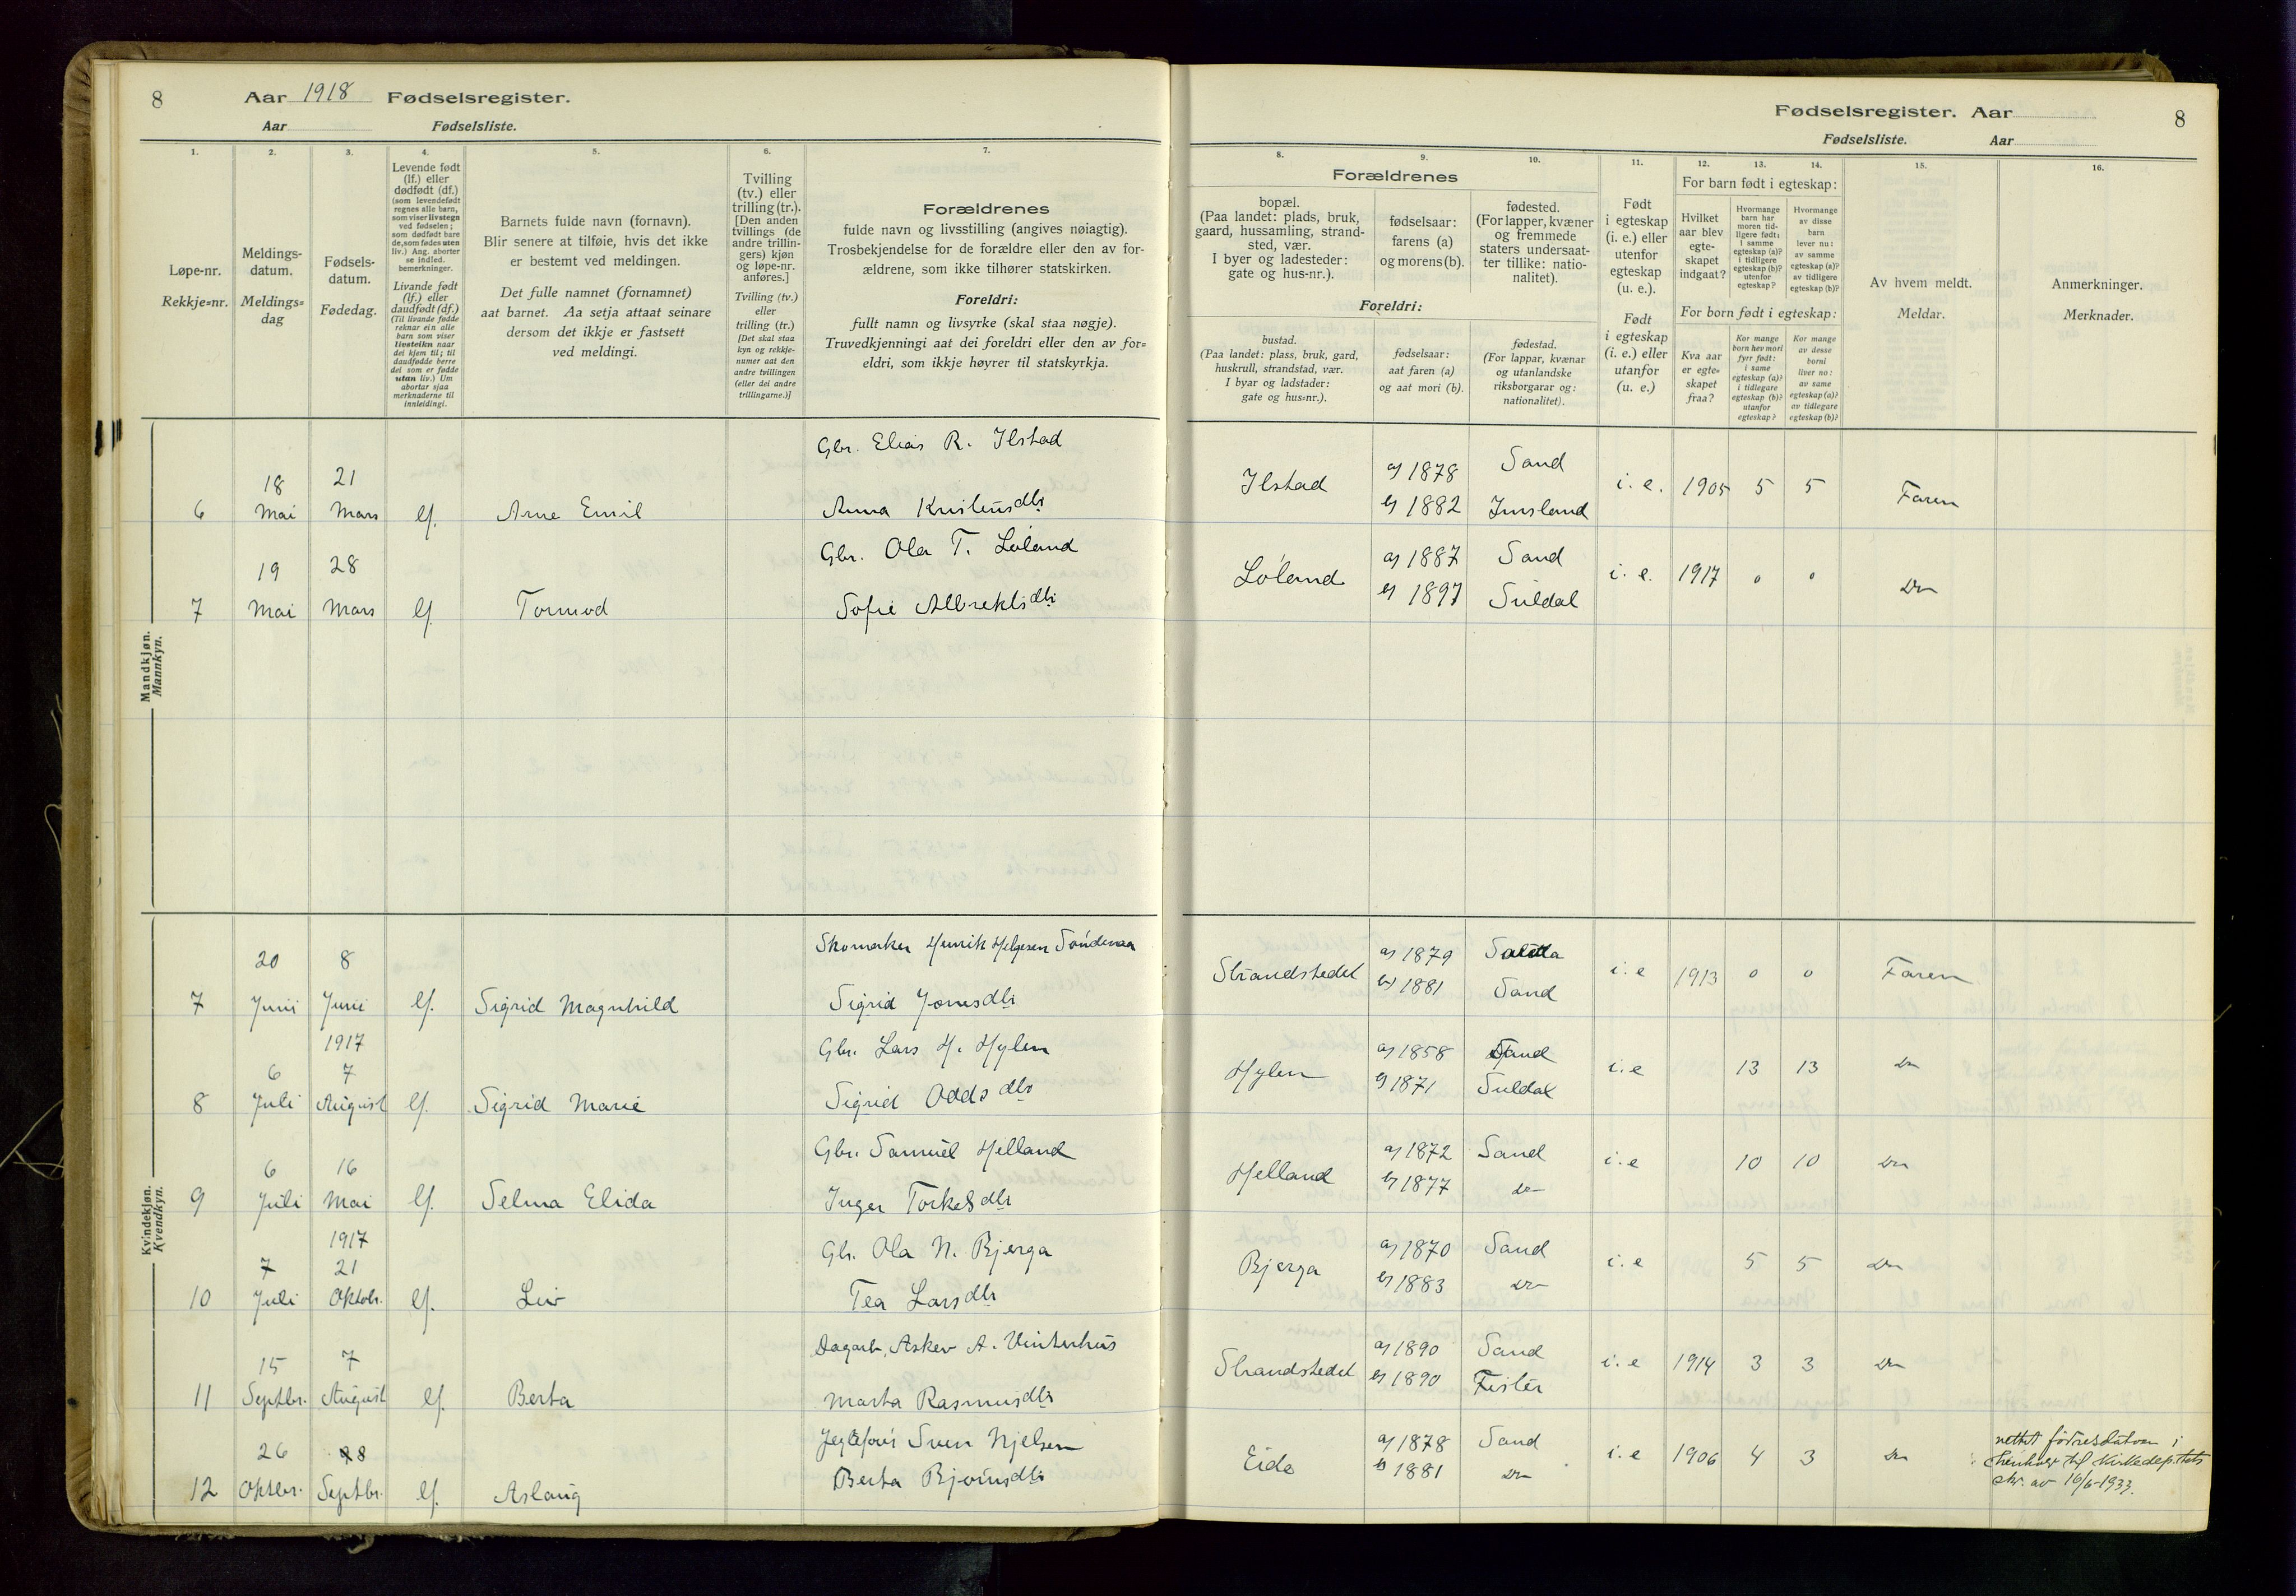 8
Aar 1918 Fødselsregister.
Aar Fødselsliste.
1.
Løpe-nr.
Rekkje=nr.
2.
Meldings-
datum.
Meldings=
dag
3.
Fødsels-
datum.
Fødedag.
4.
Levende født
(lf.) eller
dødfødt (df.)
(som levendefødt
regnes alle barn,
som viser livstegn
ved fødselen;
som dødfødt bare
de, som fødes uten
liv.) Ang. aborter
se indled.
bemerkninger.
Livande født
(lf.) eller
daudfødt (df.)
(Til livande fødde
reknar ein alle
barn som viser
livsteikn naar
dei kjem til; til
daudfødde berre
dei som er fødde
utan liv.) Um
abortar sjaa
merknaderne til
innleidingi.
5.
Barnets fulde navn (fornavn).
Blir senere at tilføie, hvis det ikke
er bestemt ved meldingen.
Det fulle namnet (fornamnet)
aat barnet. Aa setja attaat seinare
dersom det ikkje er fastsett
ved meldingi.
6.
Tvilling
(tv.) eller
trilling (tr.).
[Den anden
tvillings (de
andre trillin-
gers) kjøn
og løpe-nr.
anføres.]
Tvilling (tv.)
eller
trilling (tr.)
[Det skal staa
kyn og rekkje-
numer aat den
andre tvillingen
(eller dei andre
trillingarne.)]
7.
Forældrenes
fulde navn og livsstilling (angives nøiagtig).
Trosbekjendelse for de forældre eller den av for-
ældrene, som ikke tilhører statskirken.
Foreldri:
fullt namn og livsyrke (skal staa nøgje).
Truvedkjenningi aat dei foreldri eller den av for=
eldri, som ikkje høyrer til statskyrkja.
Mandkjøn.
Mannkyn.
Gbr. Elias R. Ilstad
18 21
6 Mai Mars lf. Arne Emil Anna Kristensdtr
Gbr. Ola T. Løland
19 28
7 Mai Mars lf. Tormod Sofie Albrektsdtr
Kvindekjøn.
Kvendkyn.
Skomaker Henrik Helgesen Søndenaa
20 8
7 Juni Juni lf. Sigrid Magnhild Sigrid Jonesdtr
1917 Gbr. Lars H. Hylen
6 7
8 Juli August lf. Sigrid Marie Sigrid Oddsdtr
Gbr. Samuel Helland
6 16
9 Juli Mai lf. Selma Elida Inger Torkelsdtr
1917 Gbr. Ola N. Bjerga
7 21
10 Juli Oktobr. lf. Liv Tea Larsdtr
Dagarb. Askev A. Vinterhus
15 7
11 Septbr. August lf. Berta Marta Rasmusdtr
Sven Njelsen
26 28
12 Oktbr. Septbr. lf. Aslaug Berta Bjørnsdtr
Fødselsregister. Aar 8
Fødselsliste. Aar
Forældrenes
8.
bopæl.
(Paa landet: plads, bruk,
gaard, hussamling, strand-
sted, vær.
I byer og ladesteder:
gate og hus-nr.).
9.
fødselsaar:
farens (a)
og morens (b).
10.
fødested.
(For lapper, kvæner
og fremmede
staters undersaat-
ter tillike: natio-
nalitet).
Foreldri:
bustad.
(Paa landet: plass, bruk, gard,
huskrull, strandstad, vær.
I byar og ladstader:
gate og hus=nr.).
fødselsaar:
aat faren (a)
og aat mori (b).
fødestad.
(For lappar, kvænar
og utanlandske
riksborgarar og:
nationalitet).
11.
Født
i egteskap
(i. e.) eller
utenfor
egteskap
(u. e.).
Født
i egteskap
(i. e.) eller
utanfor
(u. e.)
For barn født i egteskap:
12.
Hvilket
aar blev
egte-
skapet
indgaat?
13.
Hvormange
barn har
moren tid-
ligere født:
i samme
egteskap (a)?
i tidligere
egteskap (b)?
utenfor
egteskap?
14.
Hvormange
av disse
barn
lever nu:
av samme
egteskap (a)?
av tidligere
egteskap (b)?
For born født i egteskap:
Kva aar
er egte-
skapet
fraa?
Kor mange
born hev mori
fyrr født:
i same
egteskap (a)?
i tidlegare
egteskap (b)?
utanfor
egteskap?
Kor mange
av desse
borni
liver no:
av same
egteskap (a)?
av tidlegare
egteskap (b)?
15.
Av hvem meldt.
Meldar.
16.
Anmerkninger.
Merknader.
Ilstad a) 1878 Sand i. e. 1905 5 5 Faren
b) 1882 Imsland
Løland a) 1887 Sand i. e. 1917 0 0 Do
b) 1897 Suldal
Strandstedet a) 1879 i. e 1913 0 0 Faren
b) 1881 Sand
Hylen a) 1858 Sand i. e 13 13 Do
b) 1871 Suldal
Helland a) 1872 Sand i. e 10 10 Do
b) 1877 Do
Bjerga a) 1870 Sand i. e 5 5 Do
b) 1883 Do
Strandstedet a) 1890 Sand i. e 1914 3 3 Do
b) 1890 Fister
Eide a) 1878 Sand i. e 1906 4 3 Do
b) 1881 Do
rettet i
henhold til Kirkedep.tets
skr. av 16/6-1933.